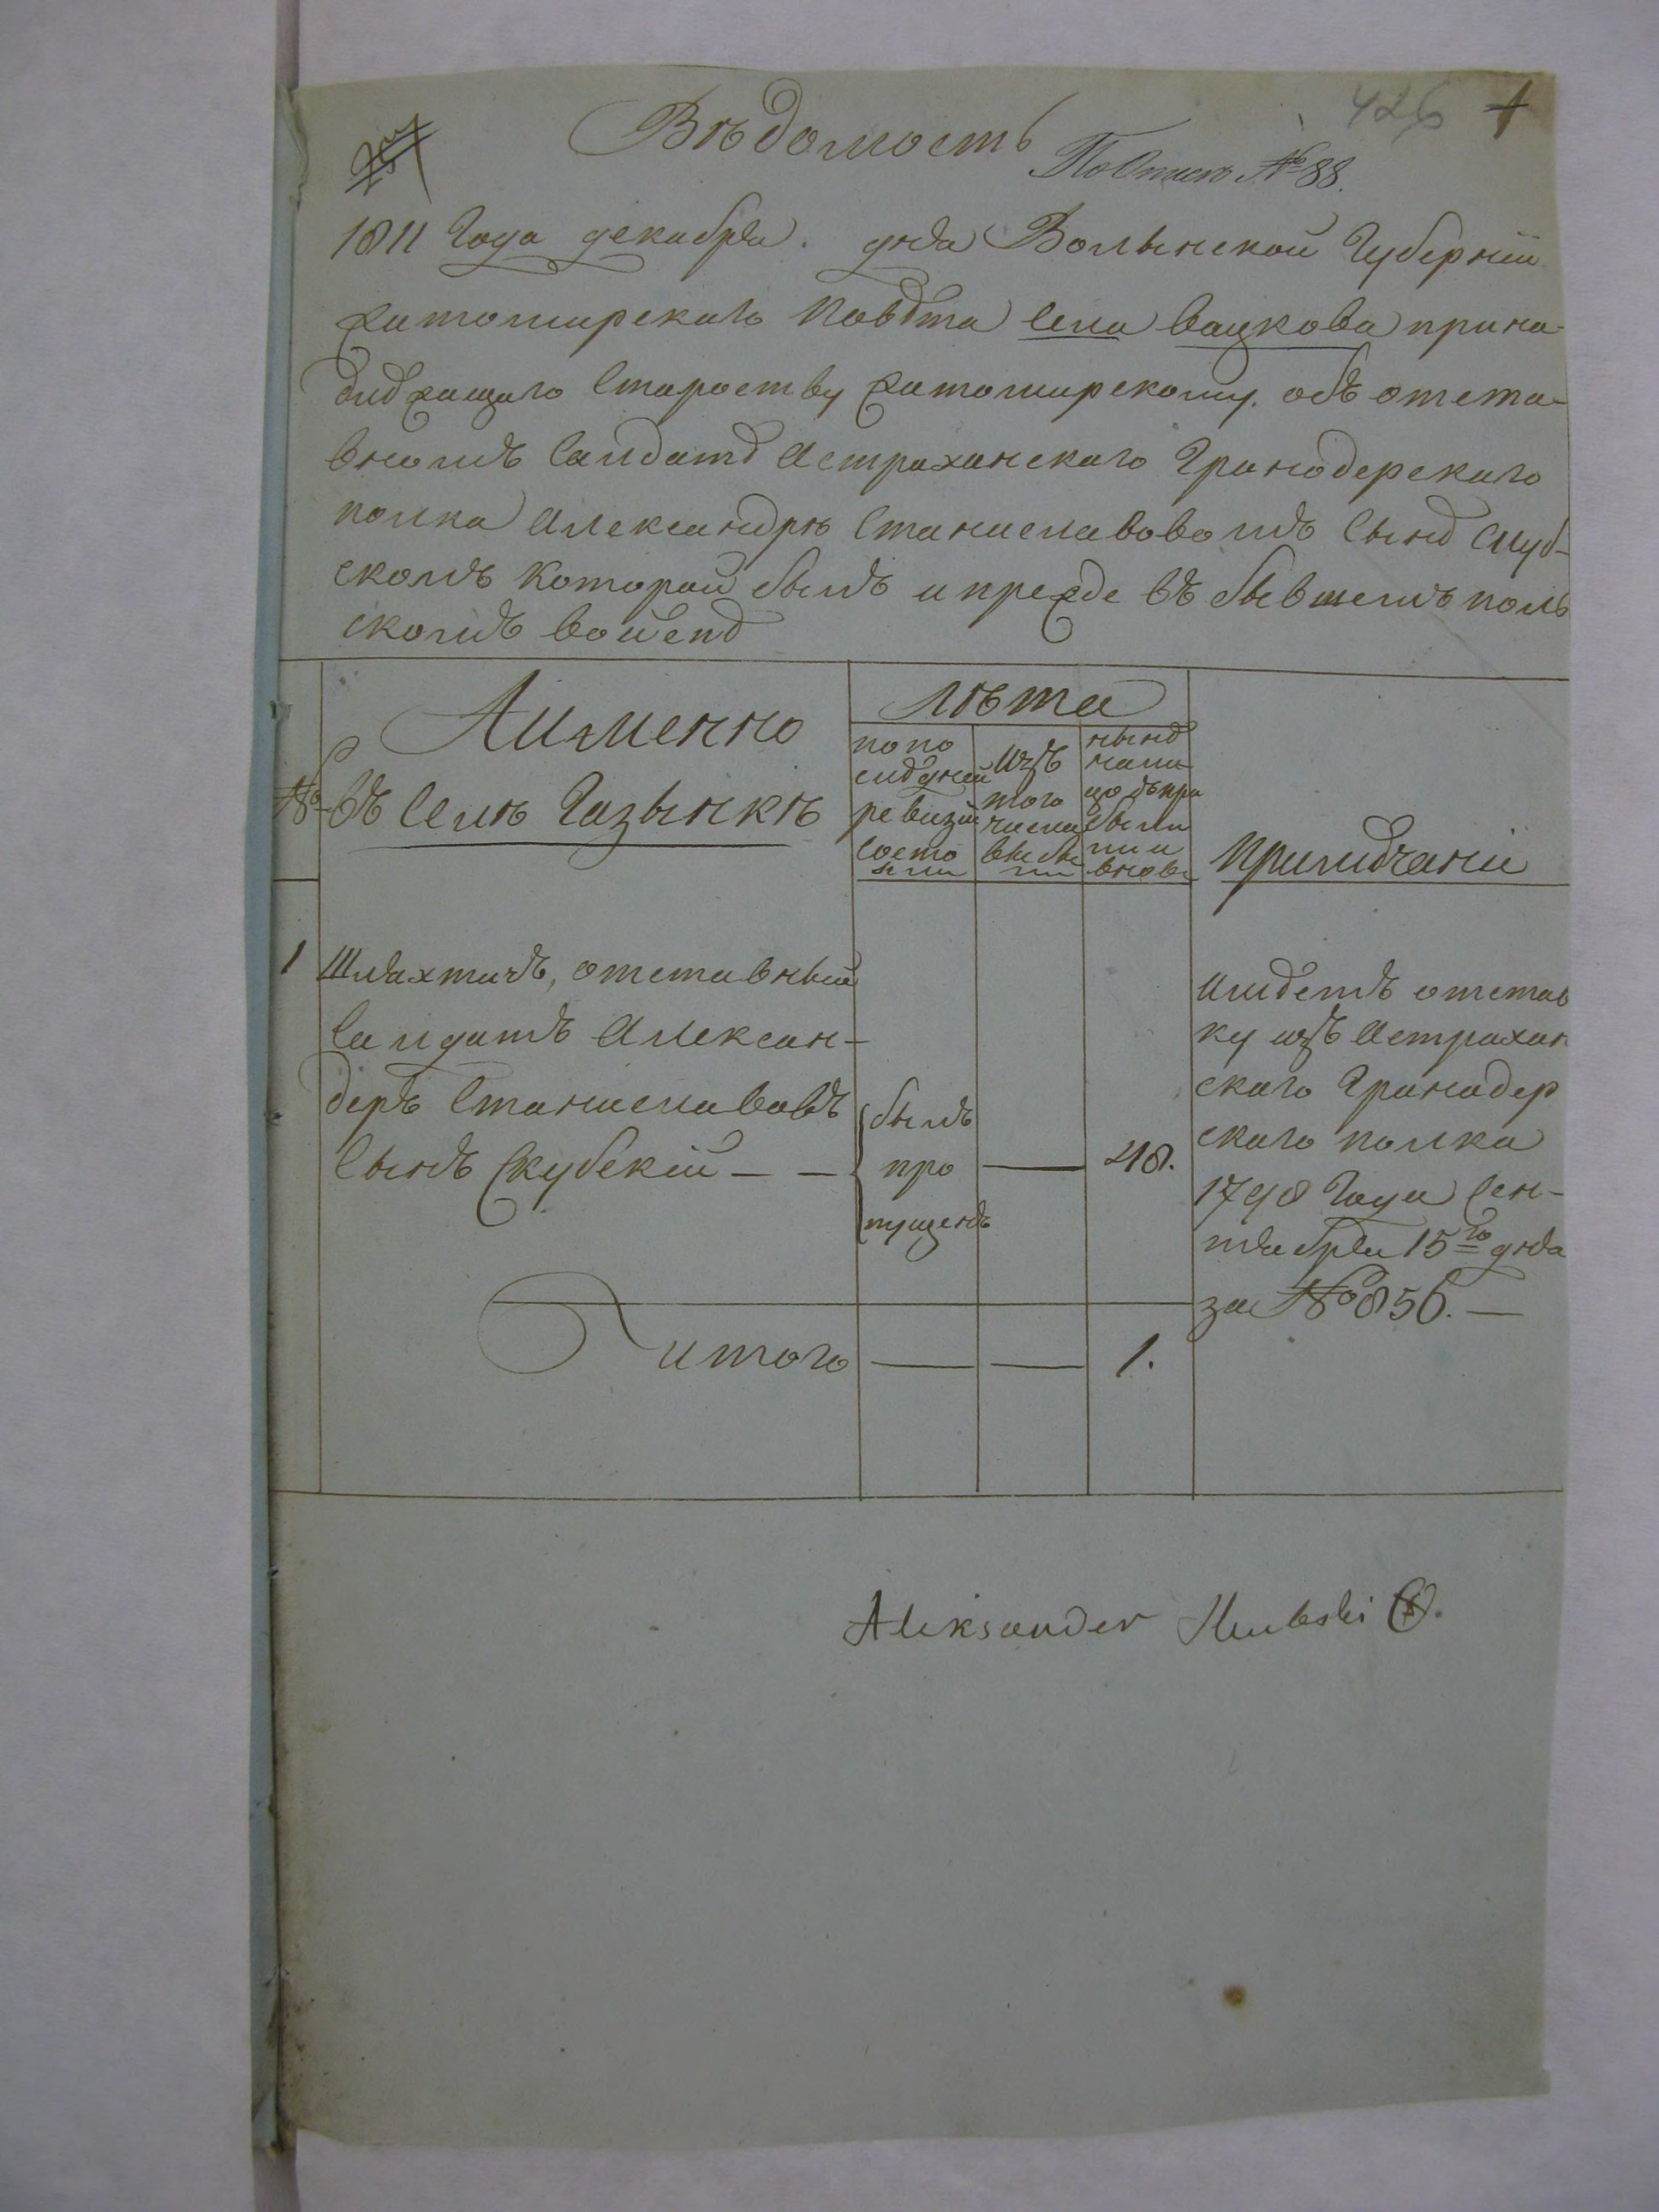 426 1
Вѣдомость
По Описю № 88.
1811 Года декабря. дня Волынской Губерніи
Житомирскаго Повѣта Села Вацкова прина-
длѣжащаго Староству Житомирскому. объ отста-
вномъ Салдатѣ Астраханскаго Гранодерскаго
полка Александрѣ Станиславовомъ Сынѣ Скуб-
скомъ которой былъ и прежде въ бывшемъ поль
скомъ войскѣ
№
Аимѣнно
въ Селѣ Газынкѣ
Лѣта
попо
слѣдней
ревизіи
состо
яли
Изъ
того
числа
выбы
ли
нынѣ
на ли
цо
были
или
вновь
Примѣчаніи
1 Шляхтичъ, отставный
Салдатъ Алексан-
деръ Станиславовъ
Сынъ Скубскій — —
былъ
про
пущенъ
—
48.
Имѣетъ отстав
ку изъ Астрахан
скаго Гранодер
скаго полка
1798 Года Сен-
тября 15го дня
за № 856. —
итого — — 1.
Aleksander Skubski